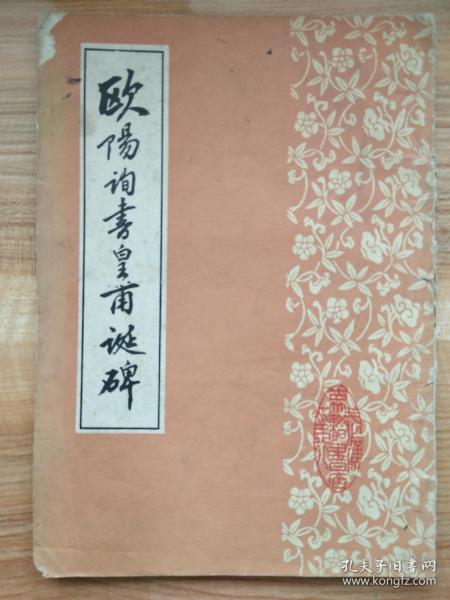 欧陽询書皇甫诞碑
孔夫子旧书网
www.kongfz.com